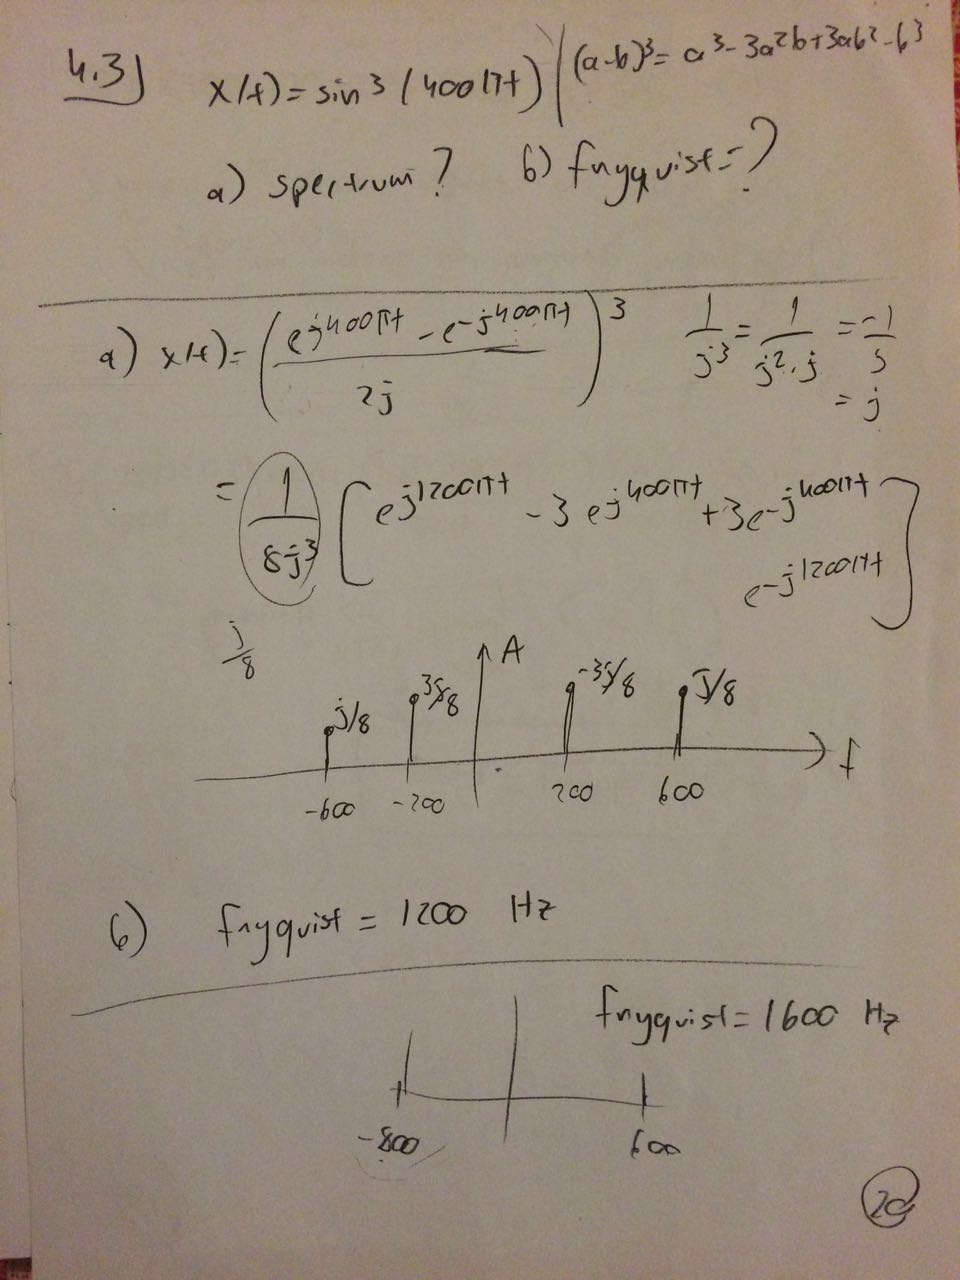 4.3) x(t) = sin³(400πt) | (a-b)³ = a³ - 3a²b + 3ab² - b³
a) spectrum? b) fnyquist = ?
a) x(t) = ( (e^{j400πt} - e^{-j400πt}) / 2j )³ 1/j³ = 1/(j²·j) = -1/j
= j
= 1/(8j³) [ e^{j1200πt} - 3e^{j400πt} + 3e^{-j400πt}
e^{-j1200πt} ]
j/8
A
j/8 3j/8 -3j/8 j/8
f
-600 -200 200 600
b) fnyquist = 1200 Hz
fnyquist = 1600 Hz
-800 600
20